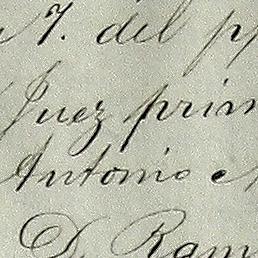 7. del pp
Juez prim
Antonio M
D. Ram